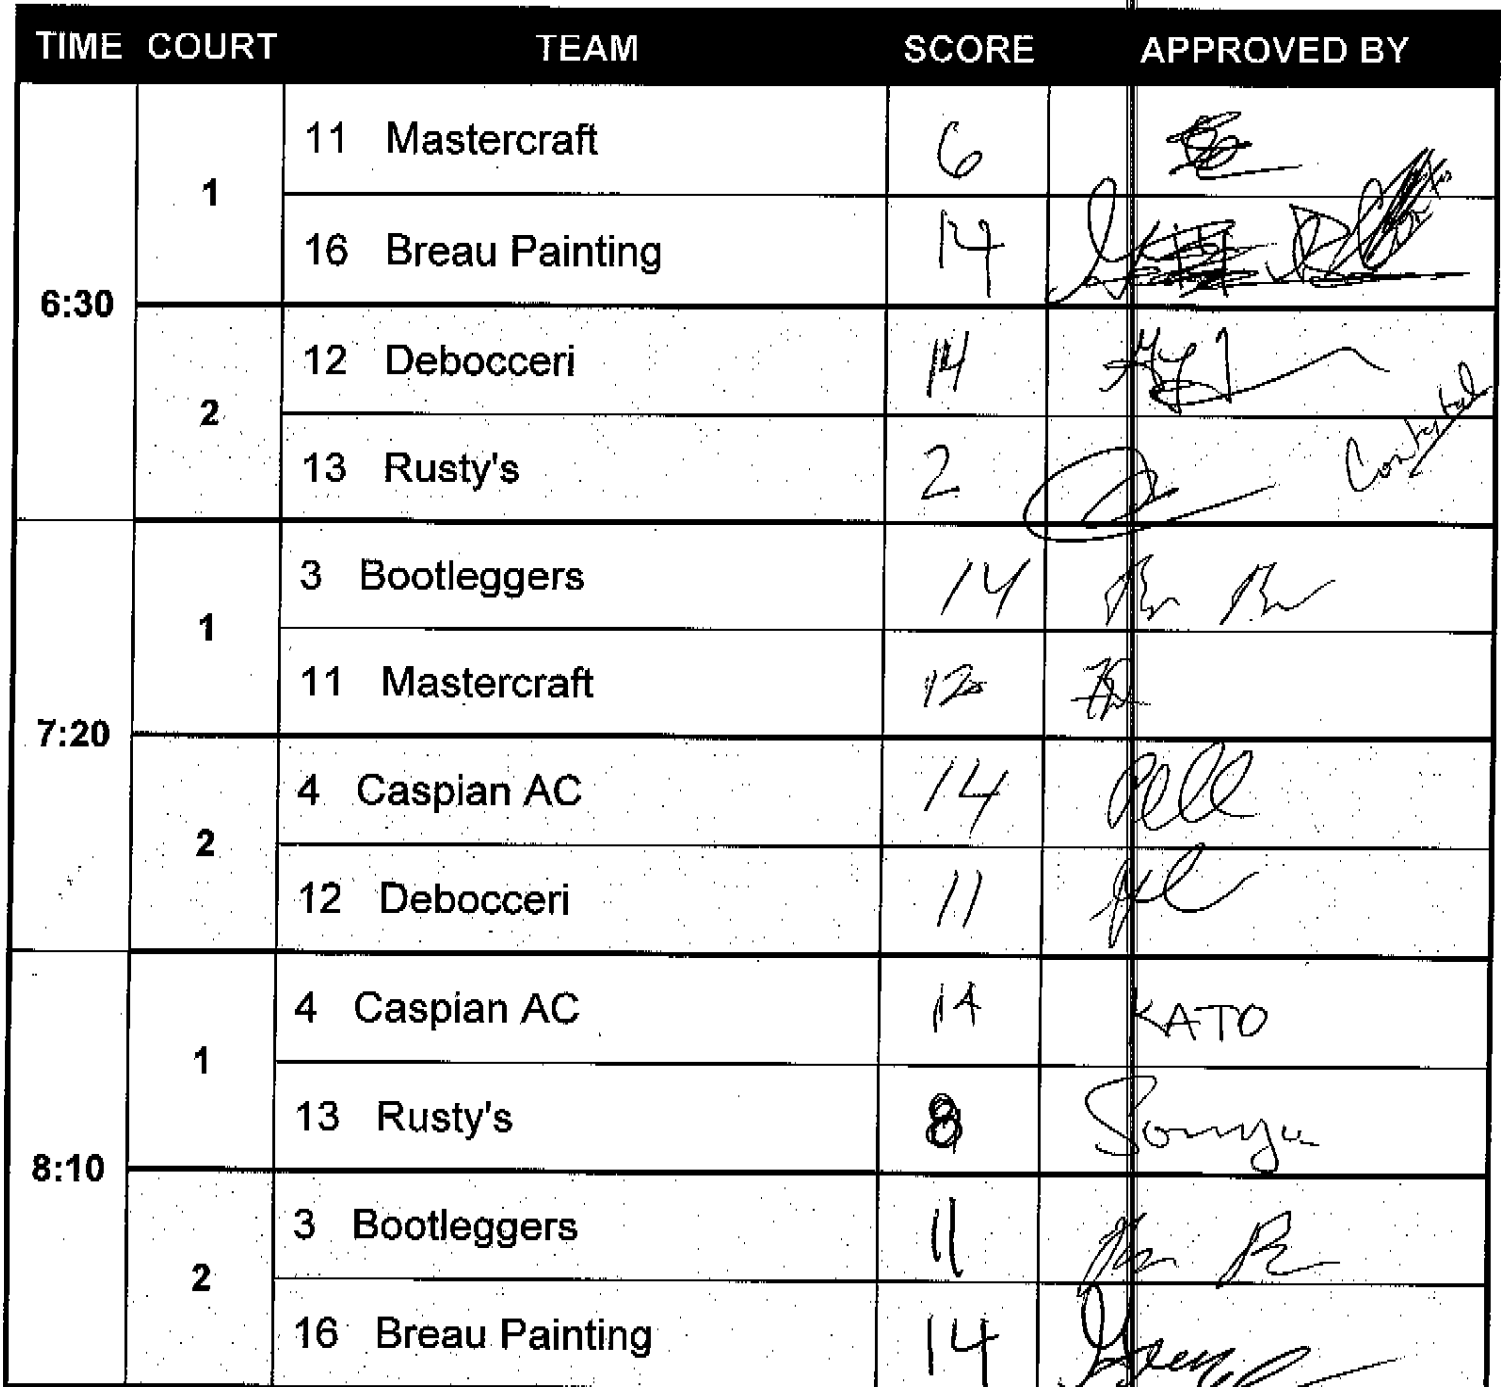 TIME COURT TEAM SCORE APPROVED BY
6:30
1
11 Mastercraft 6
16 Breau Painting 14
2
12 Debocceri 14
13 Rusty's 2
7:20
1
3 Bootleggers 14
11 Mastercraft 12
2
4 Caspian AC 14
12 Debocceri 11
8:10
1
4 Caspian AC 14 KATO
13 Rusty's 8 Sonya
2
3 Bootleggers 11
16 Breau Painting 14